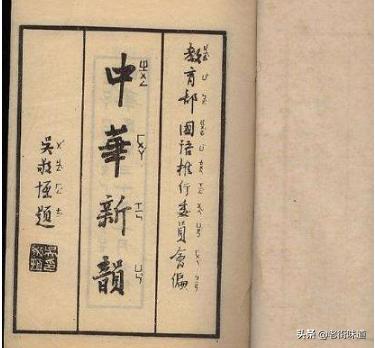 教育部國語推行委員會編
中華新韻
吳敬恒題
头条 @老街味道